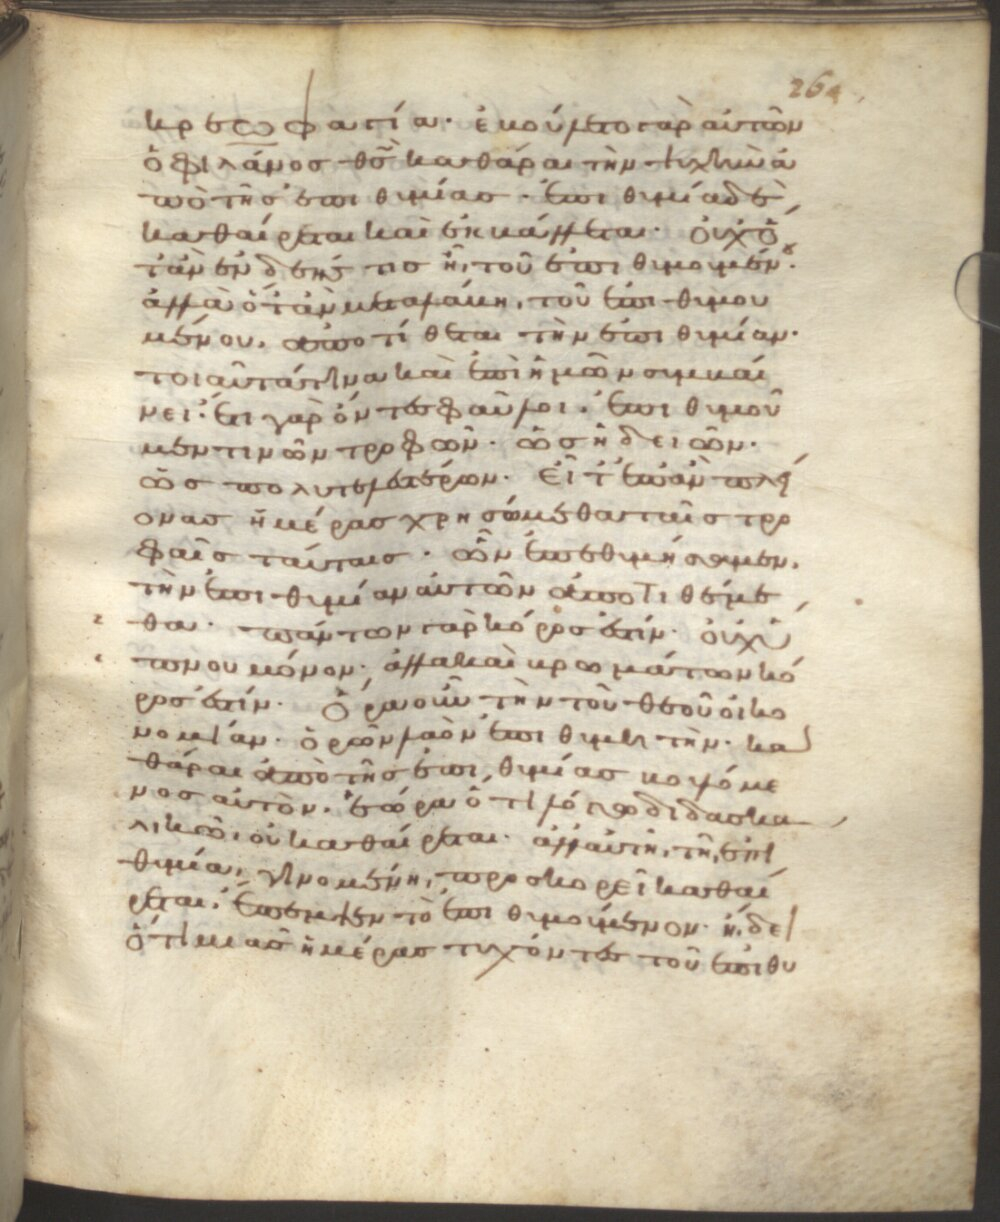 κρεωφαγία· ἐβούλετο γὰρ αὐτῶν
ὁ φιλάνος θσ καθάραι τὴν ψυχὴν ἀ
πὸ τῆς ἐπιθυμίας· ἐπιθυμία δὲ
καθαίρεται καὶ ἐκβάλλεται· οὐχ ὅ
τὰν ἐνδεής τις ἦ, τοῦ ἐπιθυμουμένου·
ἀλλὰ ὅταν μεταλάβη, τοῦ ἐπιθυμου
μένου, ἀποτίθεται τὴν ἐπιθυμίαν·
τοιαῦτά τινα καὶ ἐπὶ ἡμῶν συμβαί
νει· ἔτι γὰρ ὄντες φαῦλοι· ἐπιθυμοῦ
μέν τινων τροφῶν· ὡς ἡδειῶν·
ὡς πολυτελεστέρων· εἶτ' ἐπὰν πλεί
ονας ἡμέρας χρησώμεθα ταῖς τρο
φαῖς ταύταις· ὧν ἐπεθυμήσαμεν,
τὴν ἐπιθυμίαν αὐτῶν ἀποτιθέμε
θα· πάντων γὰρ κόρος ἐστίν· οὐχ ὕ
πνου μόνον, ἀλλὰ καὶ βρωμάτων κό
ρος ἐστίν· Ὅρα οὖν τὴν τοῦ θεοῦ οἰκο
νομίαν· ὁρῶν λαὸν ἐπιθυμητὴν· κα
θάραι ἀπὸ τῆς ἐπιθυμίας βουλόμε
νος αὐτὸν· ἑώρα ὅτι λόγω διδασκα
λικῶ, οὐ καθαίρεται· ἀλλ' αὐτῆ, τῆ, ἐπι
θυμία, γινομένη, προσκορεῖ καθαί
ρεται· ἔπεμψεν τὸ ἐπιθυμούμενον· ἤδει
ὅτι μιᾶς ἡμέρας τυχόντες τοῦ ἐπιθυ